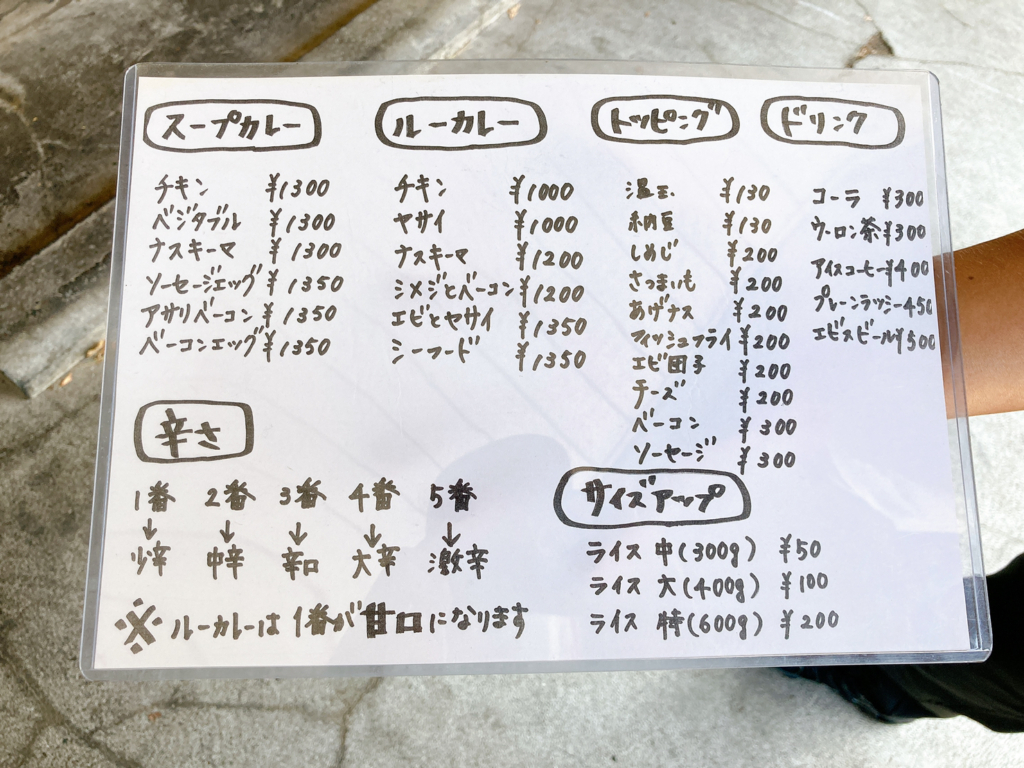 スープカレー
チキン ¥1300
ベジタブル ¥1300
ナスキーマ ¥1300
ソーセージエッグ ¥1350
アサリベーコン ¥1350
ベーコンエッグ ¥1350
ルーカレー
チキン ¥1000
ヤサイ ¥1000
ナスキーマ ¥1200
シメジとベーコン ¥1200
エビとヤサイ ¥1350
シーフード ¥1350
トッピング
温玉 ¥130
納豆 ¥130
しめじ ¥200
さつまいも ¥200
あげナス ¥200
フィッシュフライ ¥200
エビ団子 ¥200
チーズ ¥200
ベーコン ¥300
ソーセージ ¥300
ドリンク
コーラ ¥300
ウーロン茶 ¥300
アイスコーヒー ¥400
プレーンラッシー 450
エビスビール ¥500
辛さ
1番 2番 3番 4番 5番
↓ ↓ ↓ ↓ ↓
少辛 中辛 辛口 大辛 激辛
※ルーカレーは1番が甘口になります
サイズアップ
ライス 中(300g) ¥50
ライス 大(400g) ¥100
ライス 特(600g) ¥200